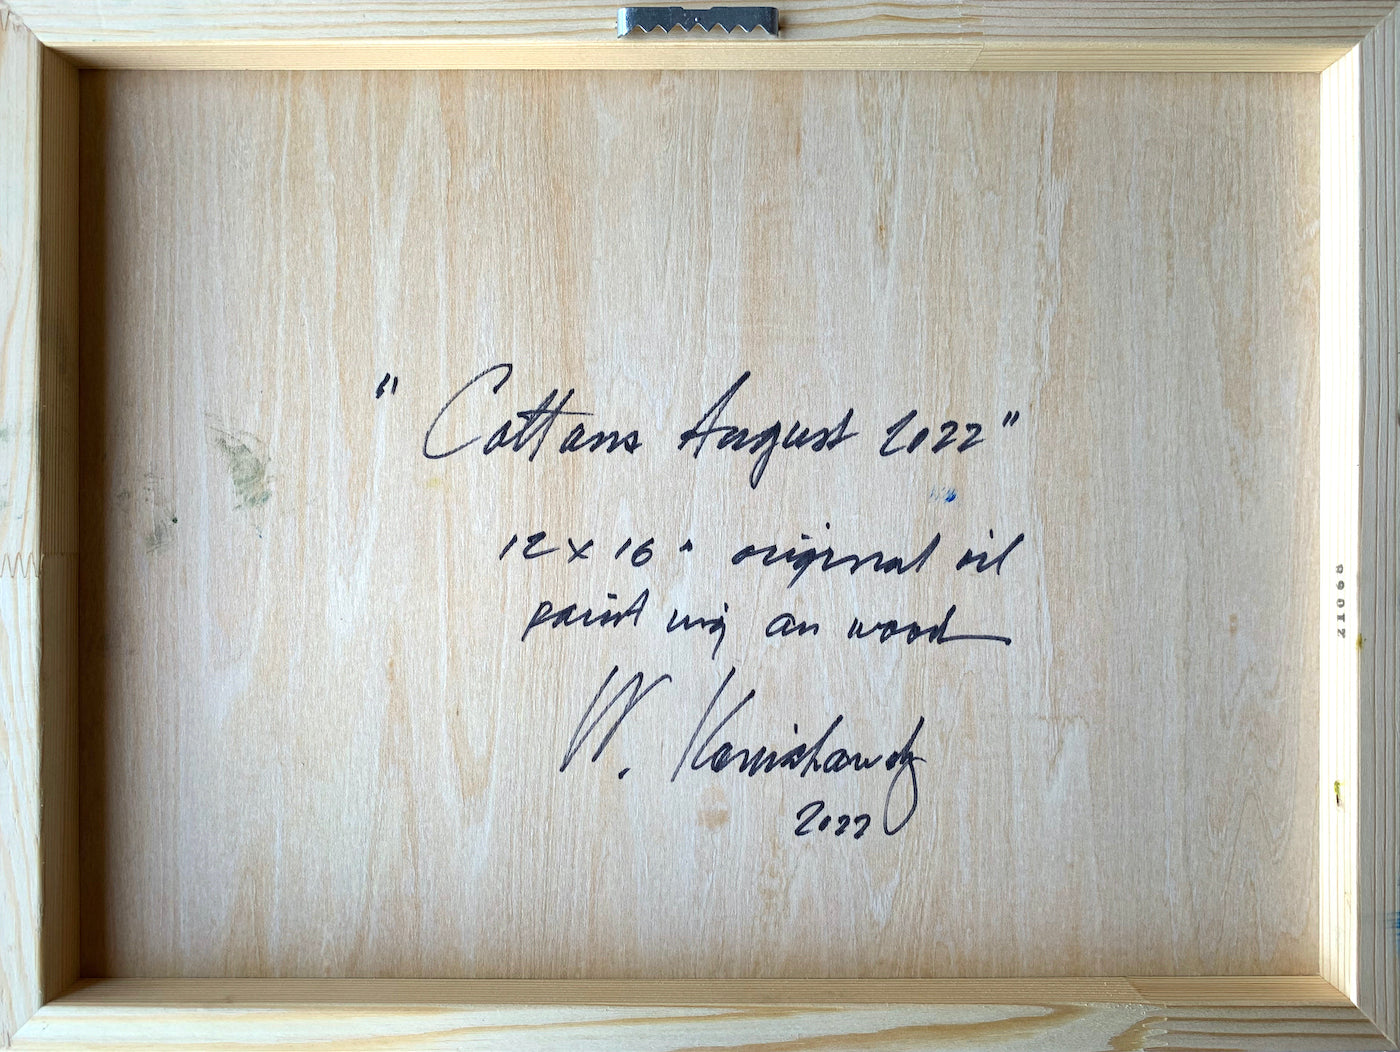 "Cottons August 2022"
12 x 16" original oil
painting on wood
W.
2022
21068